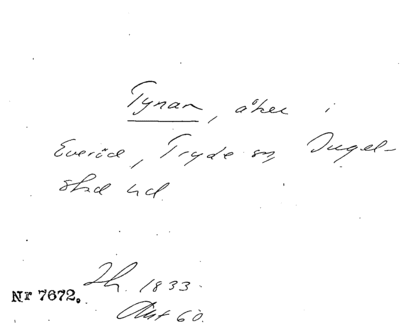 Tynan, åker i
Everöd, Tryde sn, Ingel-
stad hd.
Lh. 1833.
Nr 7672.
Akt 60.